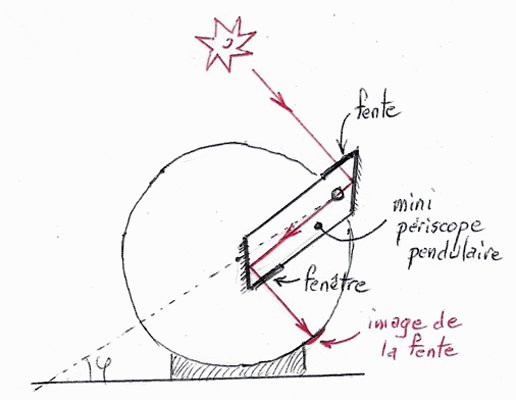 fente
mini
périscope
pendulaire
fenêtre
image de
la fente
φ